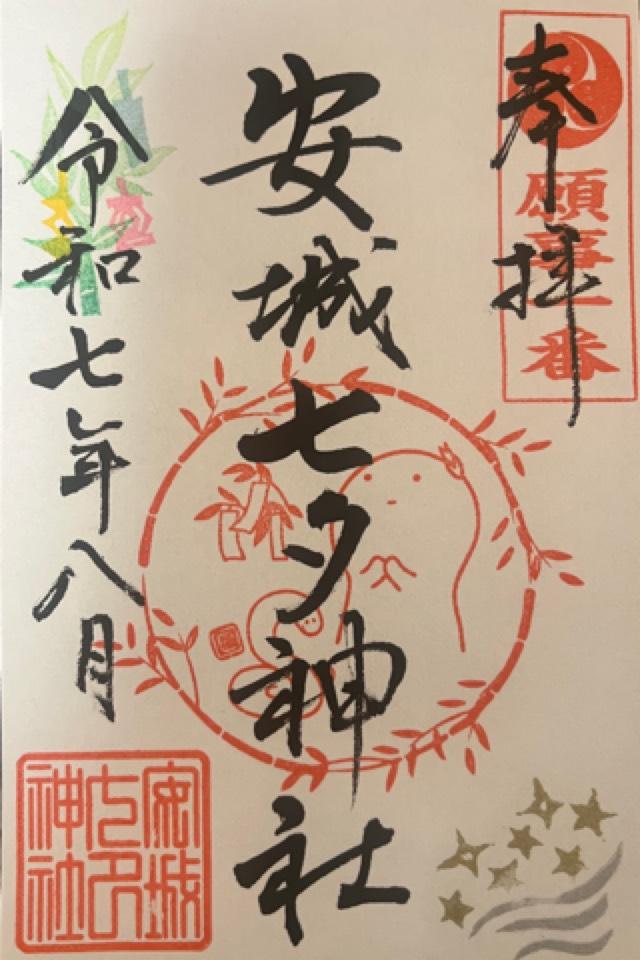 奉拝
願事一番
安城七夕神社
令和七年八月
安城
七夕
神社